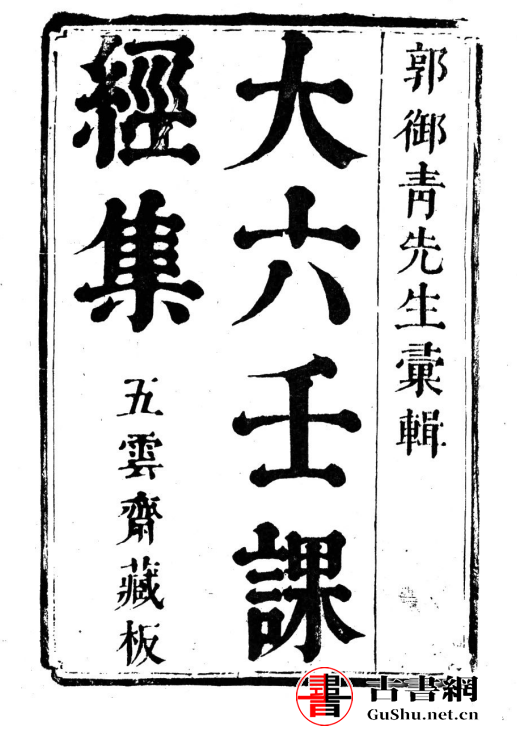 郭御青先生彙輯
大六壬課
經集
五雲齋藏板
書 古書網
GuShu.net.cn